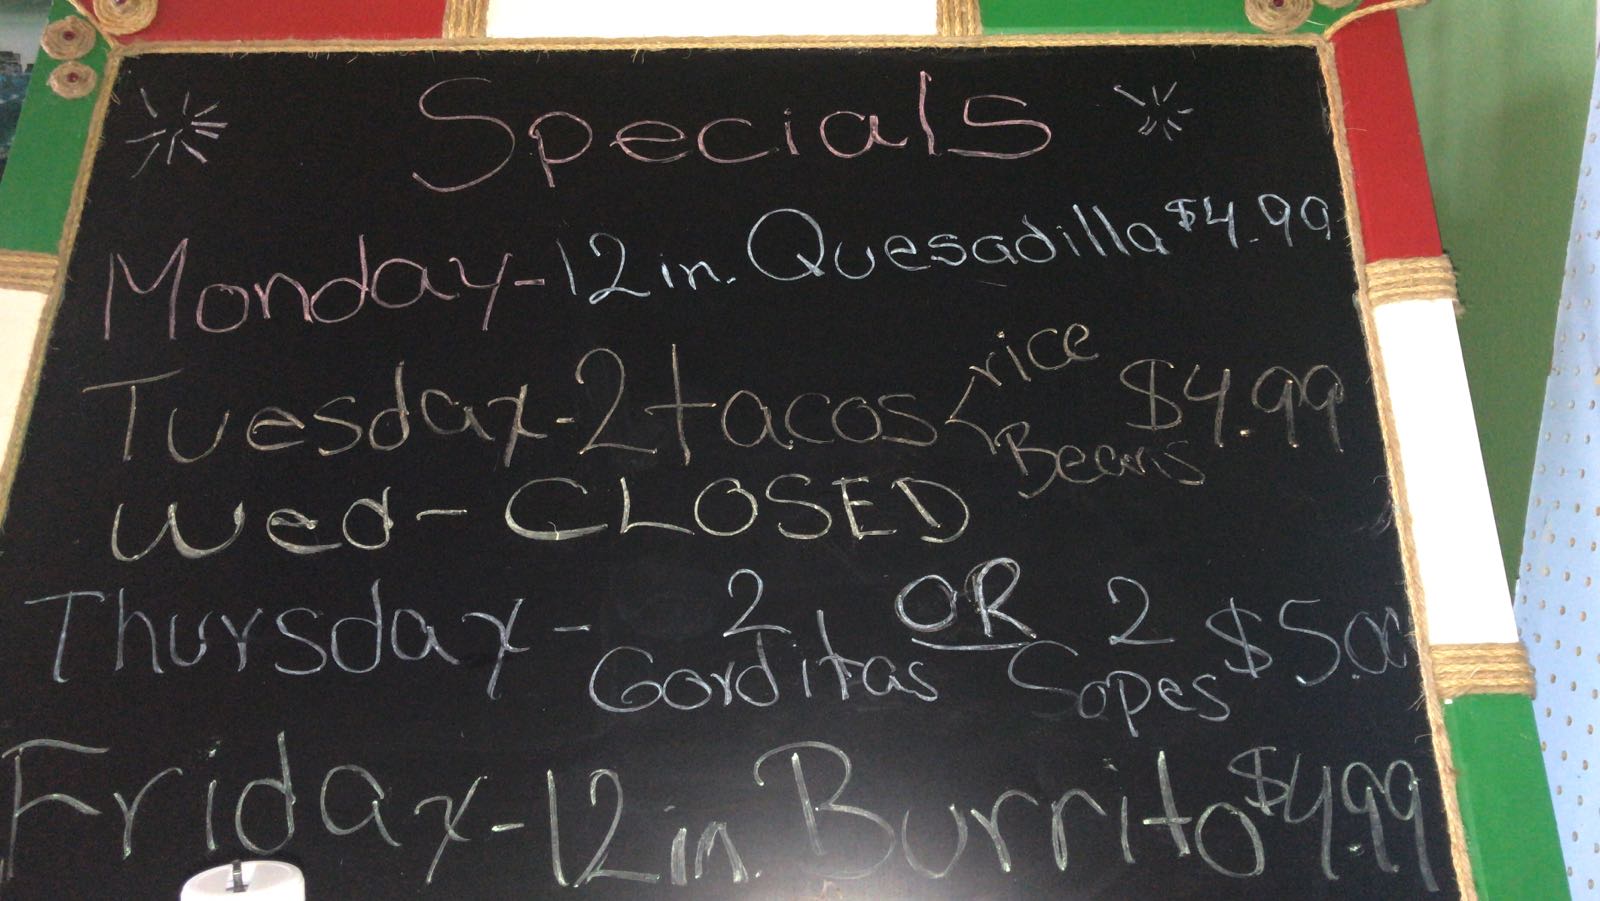 Specials
Monday - 12 in. Quesadilla $4.99
Tuesday - 2 tacos < rice Beans $4.99
Wed - CLOSED
Thursday - 2 Gorditas OR 2 Sopes $5.00
Friday - 12 in. Burrito $4.99